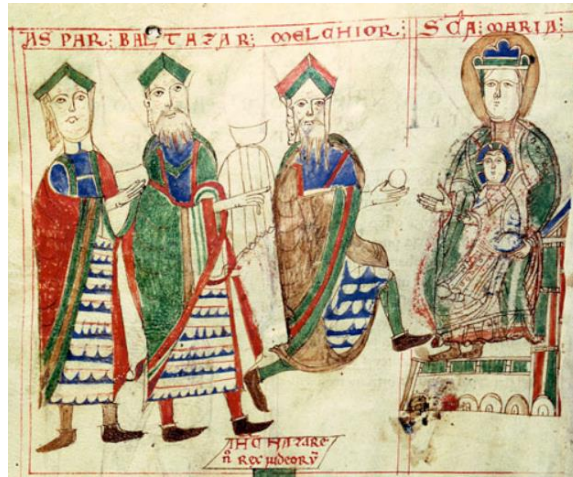 ASPAR: BALTAZAR: MELCHIOR: SCA: MARIA:
IHC NAZARE
N REX IUDEORU